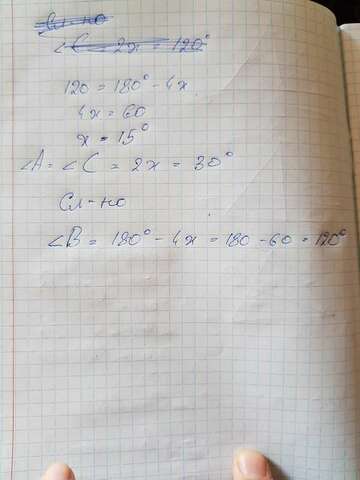 Сл-но
∠C = 2x = 120°
120 = 180° - 4x
4x = 60
x = 15°
∠A = ∠C = 2x = 30°
Сл-но
∠B = 180° - 4x = 180 - 60 = 120°